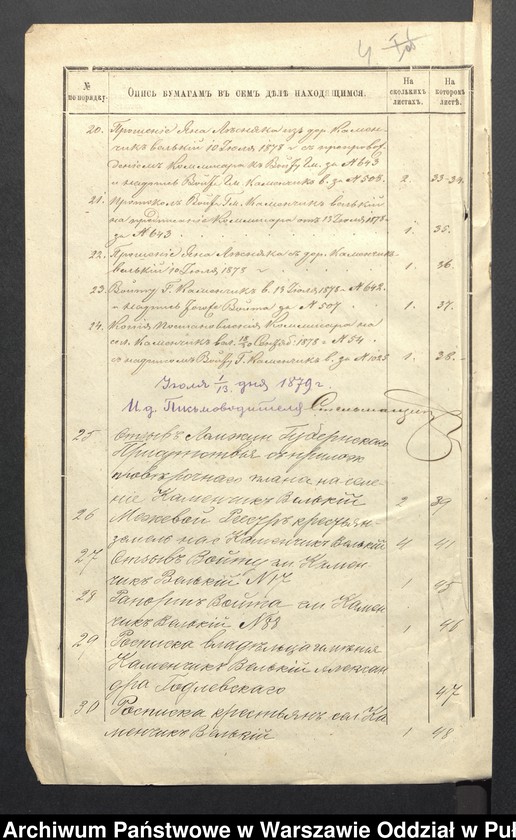 4
№ по порядку.
Опись бумагамъ въ семъ дѣлѣ находящимся.
На сколькихъ листахъ.
На которомъ листѣ.
20. Прошеніе Яна Лѣсняка изъ дер. Камен-
чикъ велькій 10 Іюля 1878 г. съ препровож-
деніемъ Коммисара къ Войту Гм. за № 643
и надпись Войта Гм. Каменчикъ в. за № 503. 2. 33-34.
21. Протоколъ Войта Гм. Каменчикъ велькій
на предписаніе Коммисара отъ 13 Іюля 1878
за № 643 1. 35.
22. Прошеніе Яна Лѣсняка съ дер. Каменчикъ-
велькій 10 Іюля 1878 г. 1. 36.
23. Войту Г. Каменчикъ в. 13 Іюля 1878 № 642
и надпись Войта за № 507 1. 37.
24. Копія Постановленія Коммисара на
сел. Каменчикъ вел. 1878 г. № 54
съ надписью Войту Г. Каменчикъ в. за № 1025 1. 38.
Іюля 1/13 дня 1879 г.
И. д. Письмоводителя
25 Отзывъ Ломжин. Губернскаго
Присутствія съ прилож
повѣрочнаго плана на селе-
ніе Каменчикъ Велькій 2 39
26 Межевой Реестръ крестьян-
земель на с Каменчикъ Велькій 4 41
27 Отзывъ Войту гм Камен
чикъ Велькій №17 1 45
28 Рапортъ Войта гм Камен
чикъ Велькій №89 1 46
29 Росписка владѣльца имѣнія
Каменчикъ Велькій Алексан
дра Годлевскаго 47
30 Росписка крестьянъ сел. Ка
менчикъ Велькій 1 48
Archiwum Państwowe w Warszawie Oddział w Puł